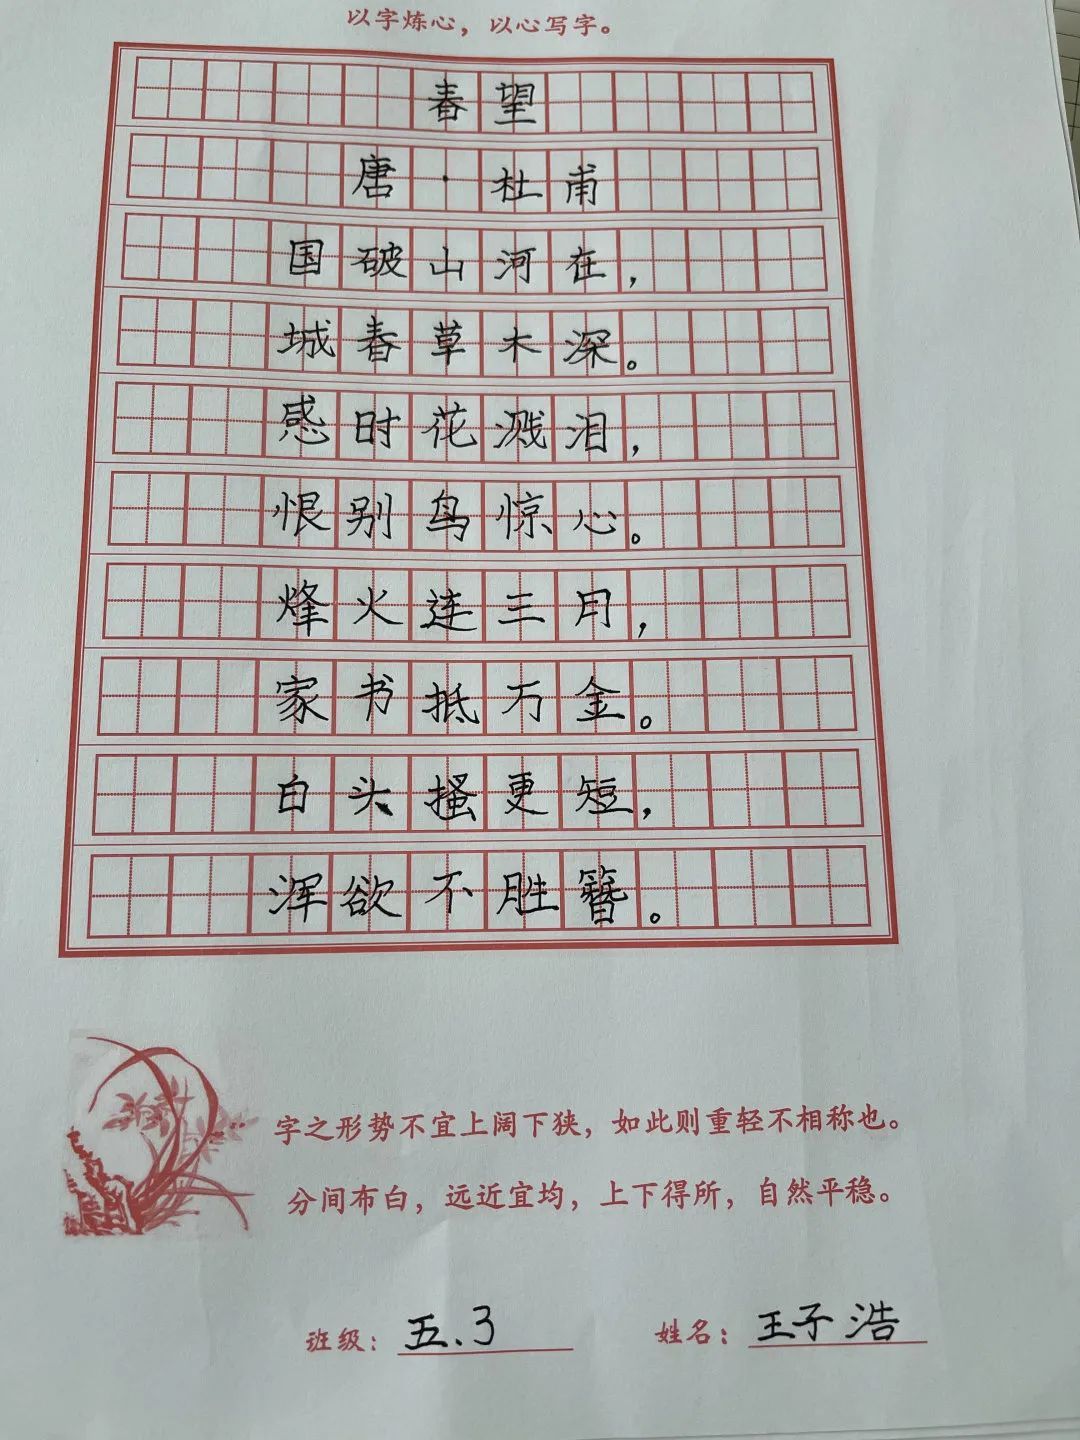 以字炼心，以心写字。
春望
唐·杜甫
国破山河在，
城春草木深。
感时花溅泪，
恨别鸟惊心。
烽火连三月，
家书抵万金。
白头搔更短，
浑欲不胜簪。
字之形势不宜上阔下狭，如此则重轻不相称也。
分间布白，远近宜均，上下得所，自然平稳。
班级：五.3 姓名：王子浩